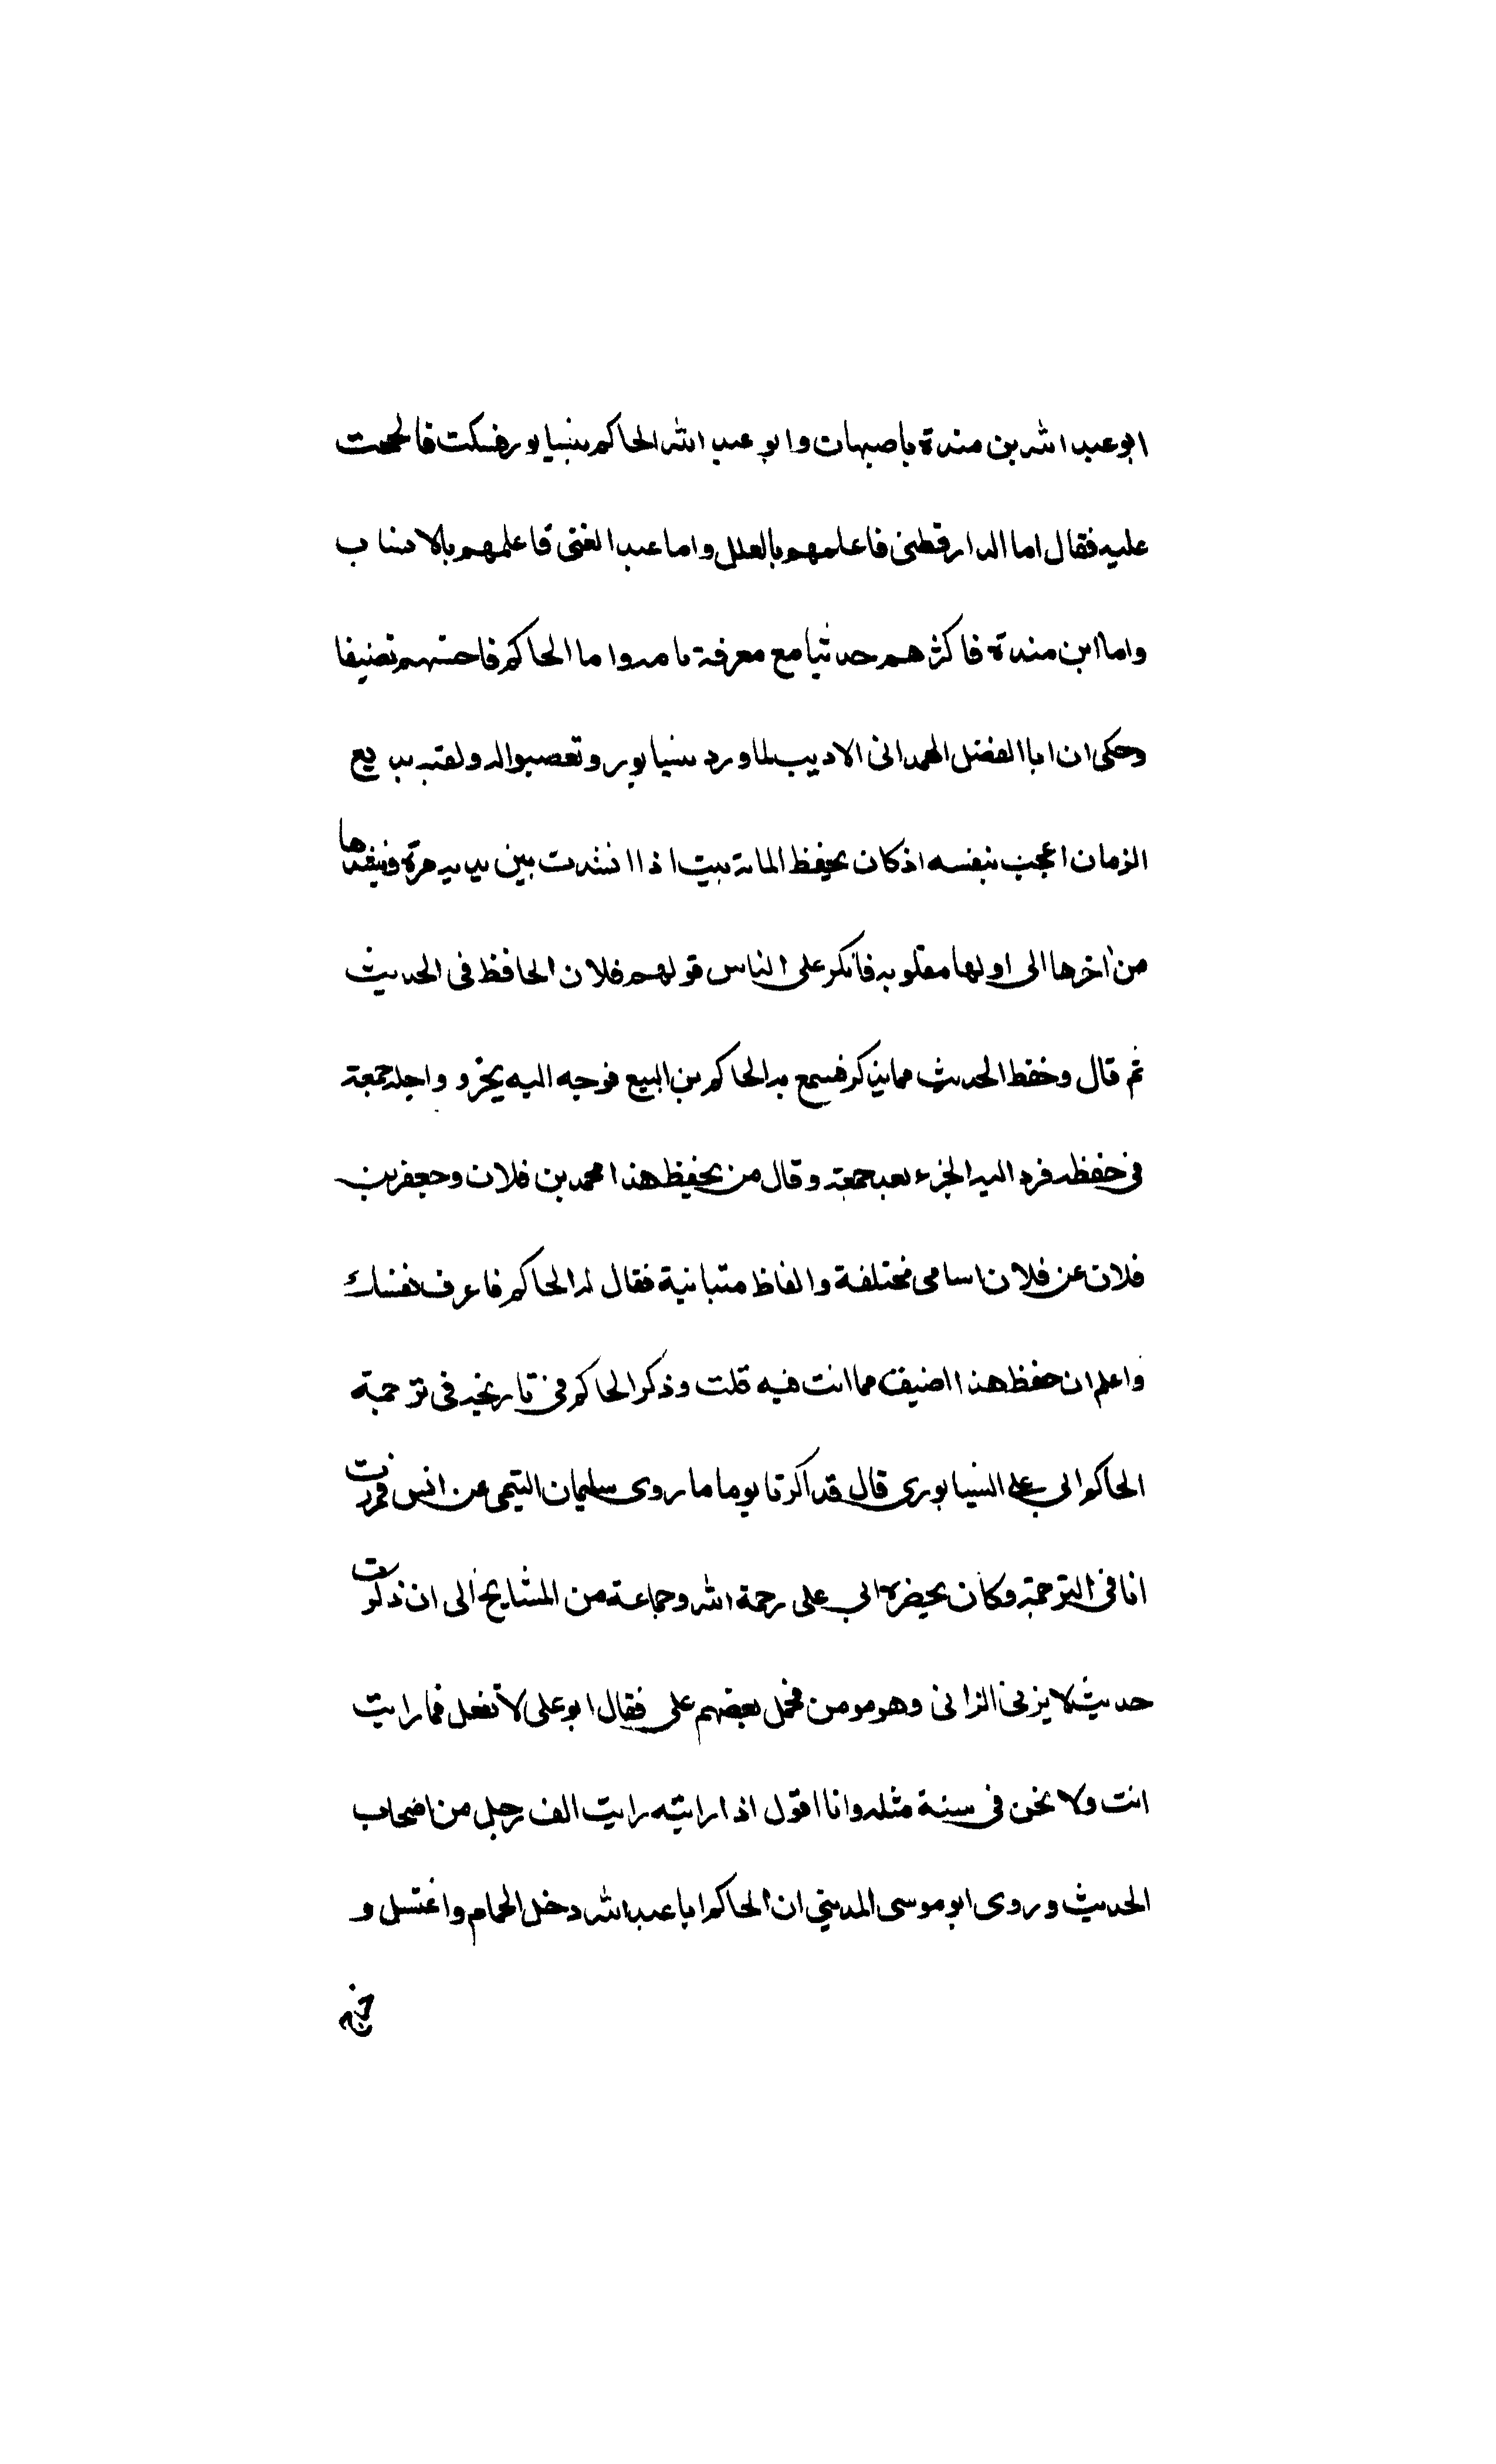 ابو عبد الله بن مندة باصبهان وابو عبد الله الحاكم بنيسابور فسكت فالححت
عليه فقال اما الدارقطنى فاعلمهم بالعلل واما عبد الغنى فاعلمهم بالانساب
واما ابن مندة فاكثرهم حديثا مع معرفة تامه واما الحاكم فاحسنهم تصنيفا
وحكى ان ابا الفضل الهمدانى الاديب لما ورد نيسابور وتعصبوا له ولقب بديع
الزمان اعجب بنفسه اذ كان يحفظ المائة بيت اذا انشدت بين يديه مرة وينشدها
من اخرها الى اولها مقلوبه فانكر على الناس قولهم فلان الحافظ فى الحديث
ثم قال وحفظ الحديث مما يذكر فسمع به الحاكم بن البيع فوجه اليه بجزو واجله جمعة
فى حفظه فرد اليه الجزء بعد جمعة وقال من يحفظ هذا محمد بن فلان وجعفر بن
فلان عن فلان اسامى مختلفة والفاظ متباينة فقال له الحاكم فاعرف نفسك
واعلم ان حفظ هذا اضيق مما انت فيه قلت وذكر الحاكم فى تاريخه فى ترجمة
الحاكم ابى على النيسابورى قال تذاكرنا يوما ما روى سليمان التيمى عن انس فمررت
انا فى الترجمة وكان بحضرة ابى على رحمة الله وجماعة من المشايخ الى ان ذكرت
حديث لا يزنى الزانى وهو مومن فحمل بعضهم على فقال ابو على لا تفعل فما رايت
انت ولا نحن فى سنة مثله وانا اقول اذا رايته رايت الف رجل من اصحاب
الحديث وروى ابو موسى المدينى ان الحاكم ابا عبد الله دخل الحمام واغتسل و
خرج